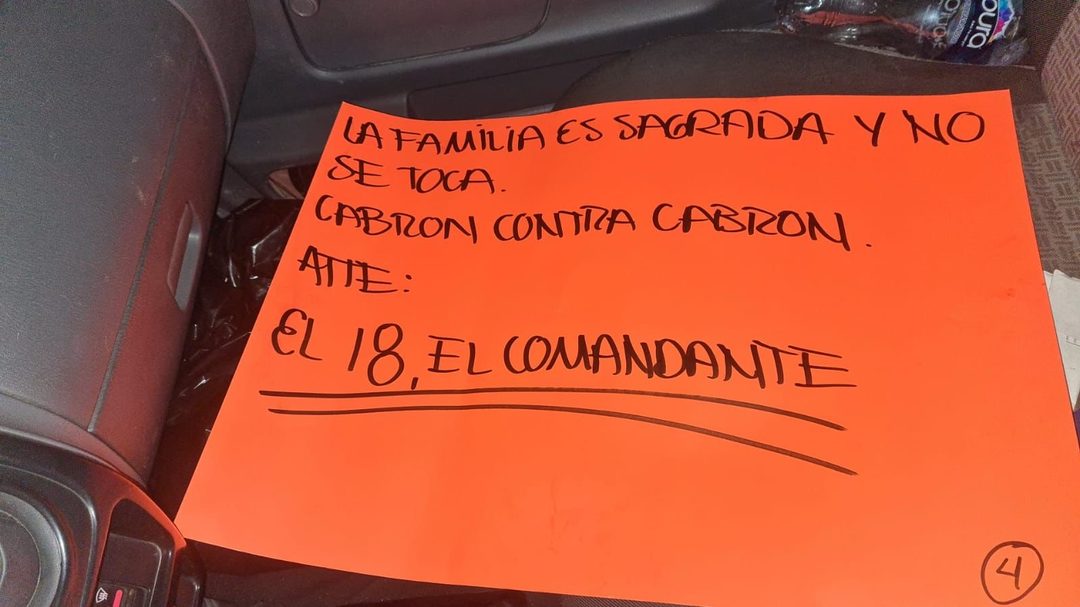 LA FAMILIA ES SAGRADA Y NO
SE TOCA.
CABRON CONTRA CABRON.
ATTE:
EL 18, EL COMANDANTE
4
pura